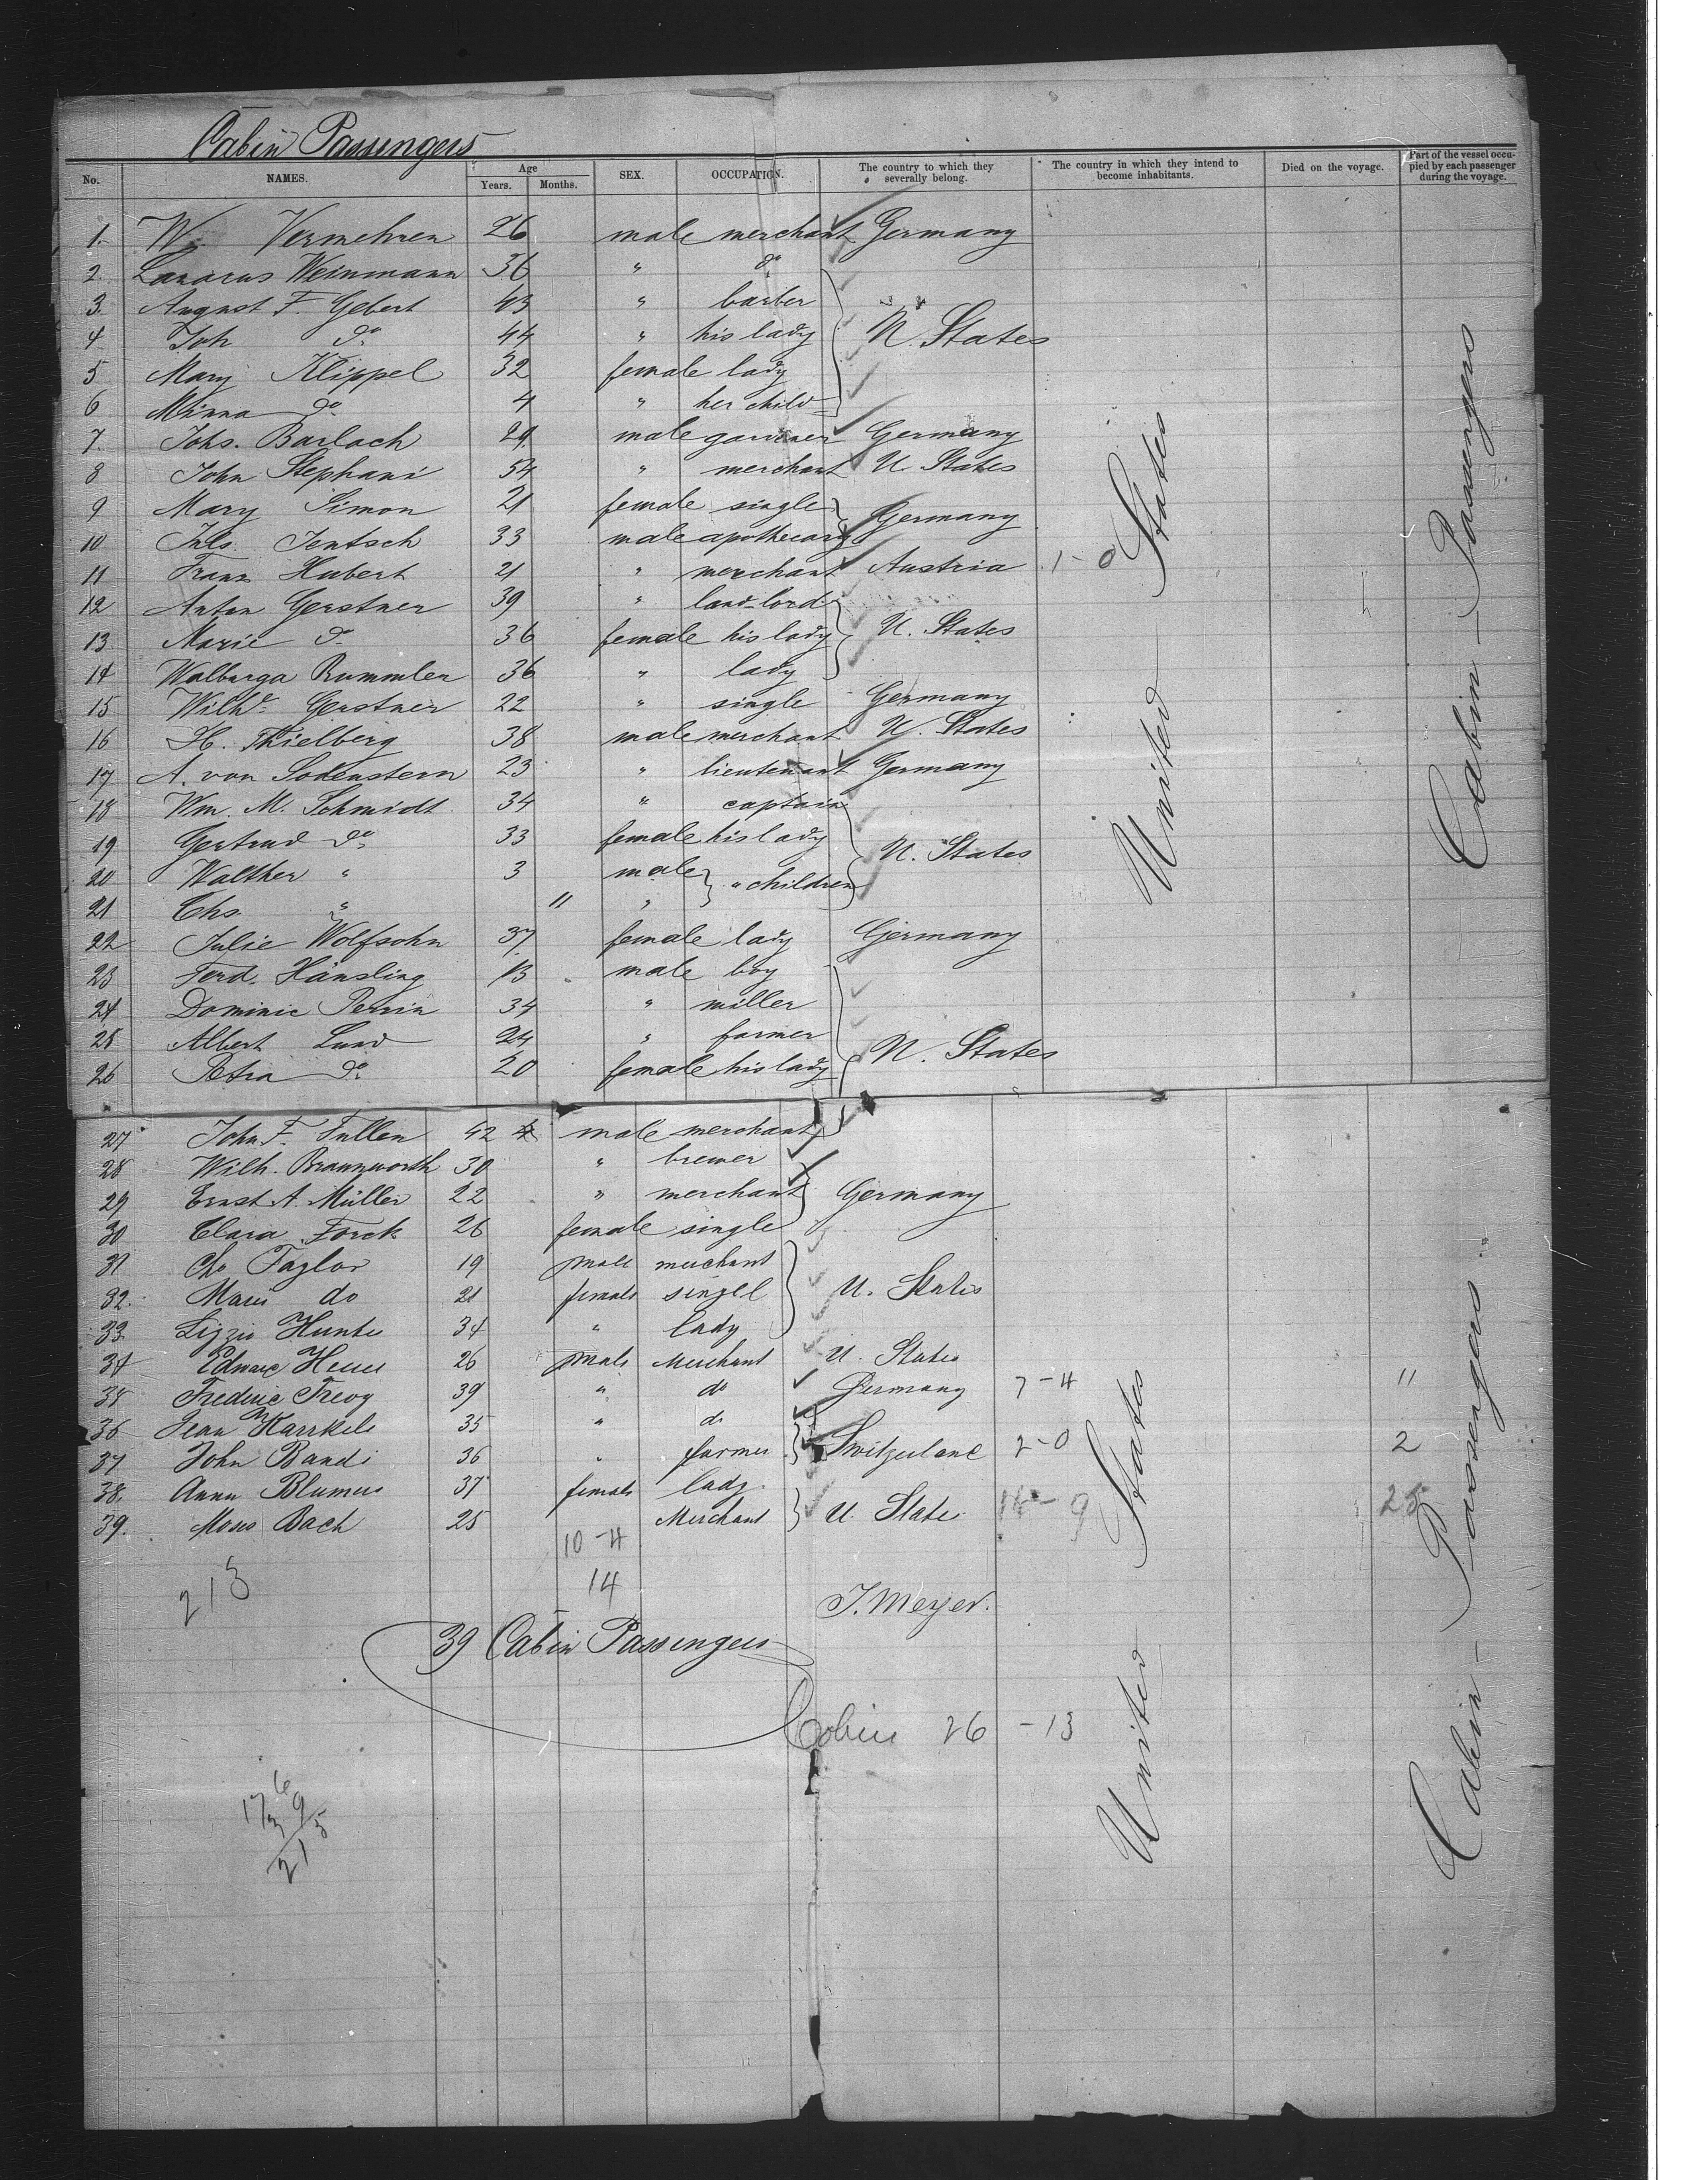 Cabin Passengers
No. NAMES. Age Years. Months. SEX. OCCUPATION. The country to which they severally belong. The country in which they intend to become inhabitants. Died on the voyage. Part of the vessel occupied by each passenger during the voyage.
1. W. Vermehren 26 male merchant Germany
2. Lazarus Weinmann 36 " do
3. August F. Gebert 43 " barber
4 Joh do 44 " his lady U. States
5 Mary Klippel 32 female lady
6 Minna do 4 " her child
7. Johs. Barlach 29 male gardener Germany
8 John Stephani 54 " merchant U. States
9 Mary Simon 21 female single
10 Juls. Jentsch 33 male apothecary Germany
11 Franz Hubert 21 " merchant Austria 1-0
12 Anton Gerstner 39 " land-lord
13 Marie do 36 female his lady U. States
14 Walburga Rummler 36 " lady
15 Wilhe. Gerstner 22 " single Germany
16 H. Thielberg 38 male merchant U. States
17 A. von Sodenstern 23 " lieutenant Germany
18 Wm. M. Schmidt 34 " captain
19 Gertrud do 33 female his lady U. States
20 Walther " 3 male " children
21 Chs. " 11 "
22 Julie Wolfsohn 37 female lady Germany
23 Ferd. Hänsling 13 male boy
24 Dominic Perrin 34 " miller
25 Albert Lund 24 " farmer
26 Petra do 20 female his lady U. States
United States
Cabin - Passengers
27 John F. Tullen 42 male merchant
28 Wilh. Braunworth 30 " brewer
29 Ernst A. Müller 22 " merchant Germany
30 Clara Forck 26 female single
31 Chs Taylor 19 male merchant
32. Marie do 21 female singel U. States
33. Lizzie Hunter 34 " lady
34 Edward Heuer 26 male Merchant U. States
35 Frederic 39 " do Germany 7-4 11
36 Jean 35 " do
37 John Bandi 36 " farmer Switzerland 2-0 2
38. Anna Blumer 37 female lady
39. Moses Bach 25 Merchant U. States 16-9 25
10-4
14
213
J. Meyer.
39 Cabin Passengers
Cabin 26-13
176
39
215
United States
Cabin - Passengers